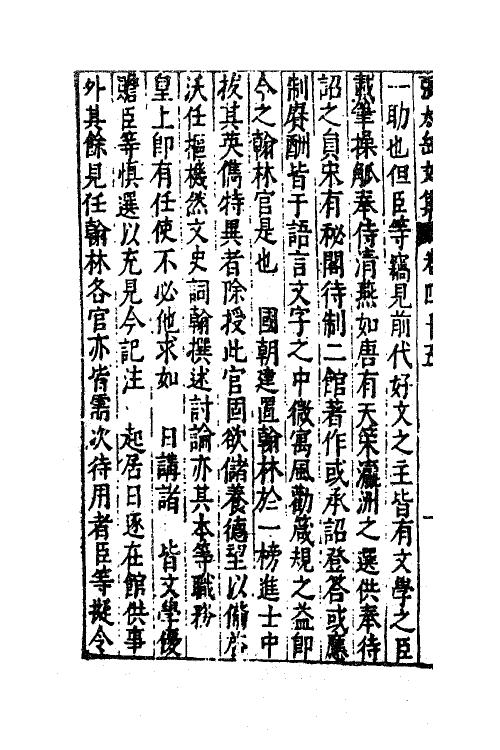 張太岳文集 卷四十五 一
一助也但臣等竊見前代好文之主皆有文學之臣
載筆操觚奉侍清燕如唐有天策瀛洲之選供奉待
詔之員宋有秘閣待制二館著作或承詔登答或應
制賡酬皆于語言文字之中微寓風勸箴規之益即
今之翰林官是也 國朝建置翰林於一榜進士中
拔其英儁特異者除授此官固欲儲養德望以備啓
沃任樞機然文史詞翰撰述討論亦其本等職務
皇上卽有任使不必他求如 日講諸 皆文學優
贍臣等慎選以充見今記注 起居日逐在館供事
外其餘見任翰林各官亦皆需次待用者臣等擬令